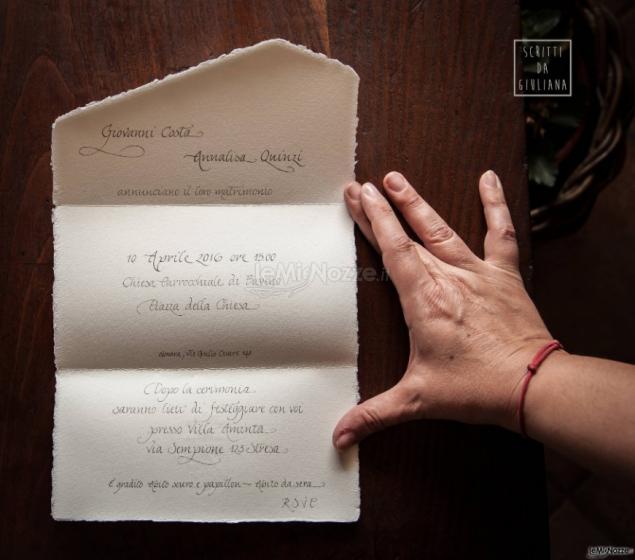 Giovanni Costa
Annalisa Quinzi
annunciano il loro matrimonio
10 Aprile 2016 ore 15.00
Chiesa Parrocchiale di Baveno
Piazza della Chiesa
Via Giulio Cesare
Dopo la cerimonia
saranno lieti di festeggiare con voi
presso Villa Aminta
via Sempione 123 Stresa
È gradito Abito scuro e papillon ~ Abito da sera
RSVP
SCRITTI
DA
GIULIANA
leMieNozze.it
leMieNozze.it